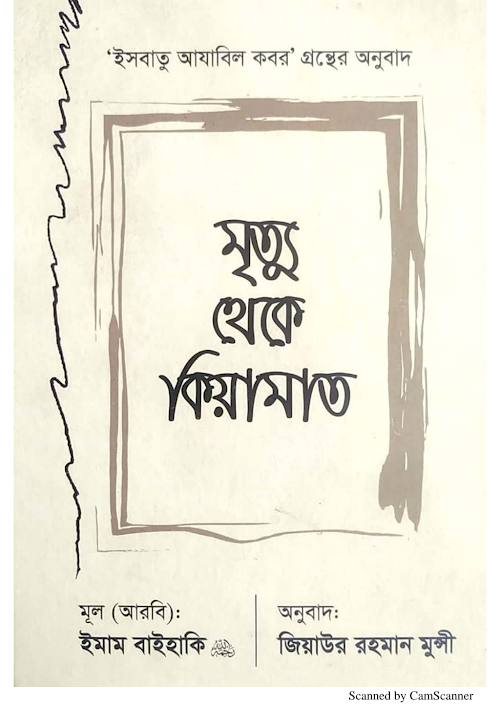 ‘ইসবাতু আযাবিল কবর’ গ্রন্থের অনুবাদ
মৃত্যু
থেকে
কিয়ামাত
মূল (আরবি):
ইমাম বাইহাকি
অনুবাদ:
জিয়াউর রহমান মুন্সী
Scanned by CamScanner